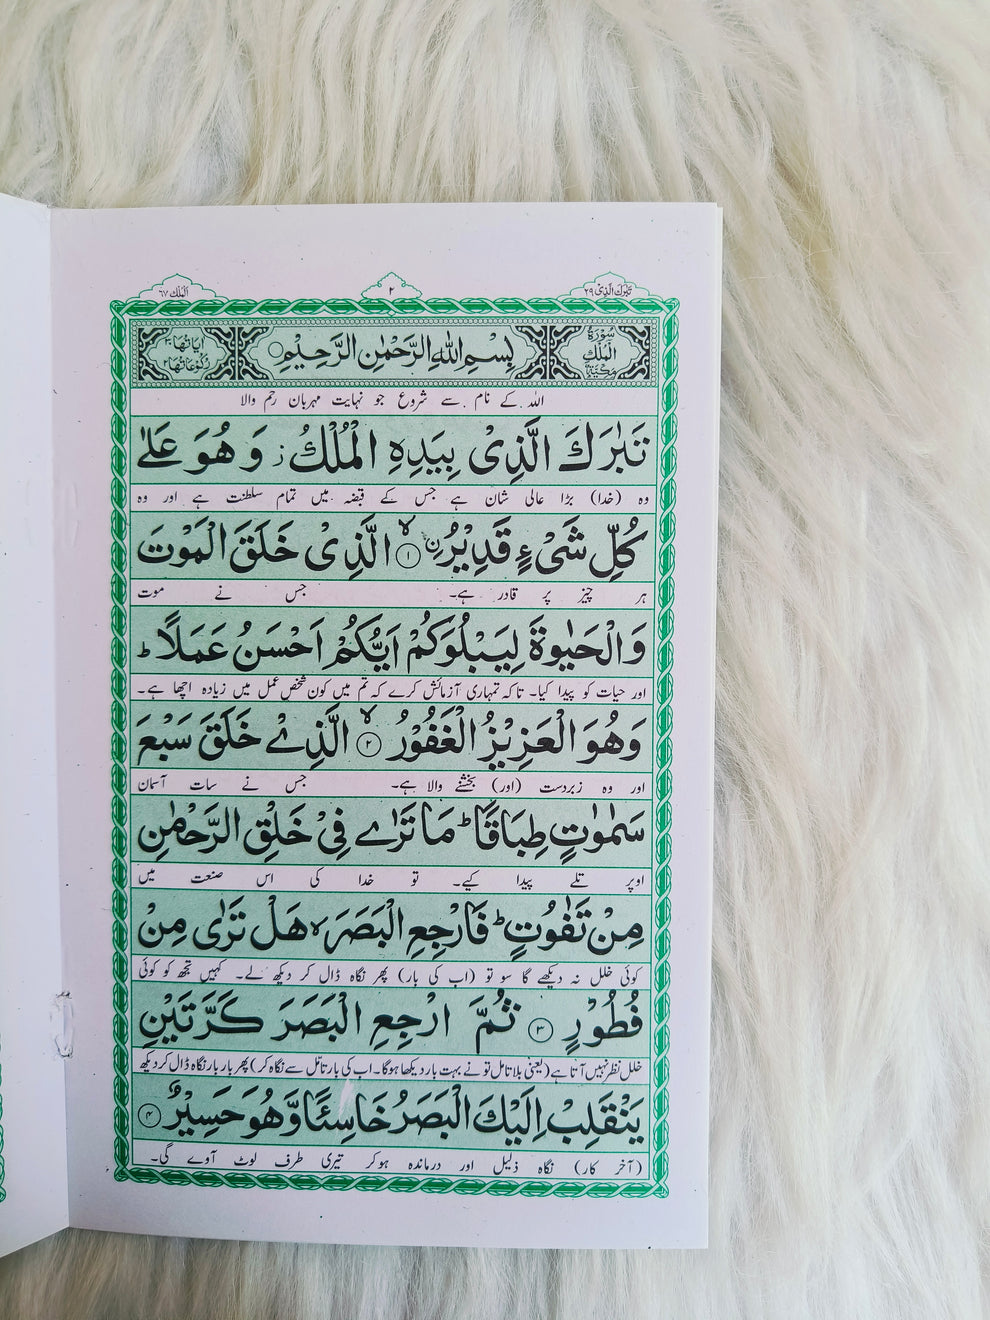 تَبٰرَكَ الَّذِیْ ۲۹
۲
اَلْمُلْك ۶۷
سُوْرَةُ الْمُلْكِ مَكِّيَّةٌ
بِسْمِ اللهِ الرَّحْمٰنِ الرَّحِيْمِ
اٰيَاتُهَا ۳۰ رُكُوْعَاتُهَا ۲
اللہ کے نام سے شروع جو نہایت مہربان رحم والا
تَبٰرَكَ الَّذِیْ بِیَدِهِ الْمُلْكُ ز وَ هُوَ عَلٰی
وہ (خدا) بڑا عالی شان ہے جس کے قبضہ میں تمام سلطنت ہے اور وہ
كُلِّ شَیْءٍ قَدِیْرُ ۙﹰ ۱ الَّذِیْ خَلَقَ الْمَوْتَ
ہر چیز پر قادر ہے۔ جس نے موت
وَالْحَیٰوةَ لِیَبْلُوَكُمْ اَیُّكُمْ اَحْسَنُ عَمَلًا ؕ
اور حیات کو پیدا کیا۔ تاکہ تمہاری آزمائش کرے کہ تم میں کون شخص عمل میں زیادہ اچھا ہے۔
وَهُوَ الْعَزِیْزُ الْغَفُوْرُ ۙ ۲ الَّذِیْ خَلَقَ سَبْعَ
اور وہ زبردست (اور) بخشنے والا ہے۔ جس نے سات آسمان
سَمٰوٰتٍ طِبَاقًا ؕ مَا تَرٰی فِیْ خَلْقِ الرَّحْمٰنِ
اوپر تلے پیدا کیے۔ تو خدا کی اس صنعت میں
مِنْ تَفٰوُتٍ ؕ فَارْجِعِ الْبَصَرَ ۙ هَلْ تَرٰی مِنْ
کوئی خلل نہ دیکھے گا سو تو (اب کی بار) پھر نگاہ ڈال کر دیکھ لے۔ کہیں تجھ کو کوئی
فُطُوْرٍ ۳ ثُمَّ ارْجِعِ الْبَصَرَ كَرَّتَیْنِ
خلل نظر نہیں آتا ہے (یعنی بلا تامل تو نے بہت بار دیکھا ہوگا۔ اب کی بار تامل سے نگاہ کر) پھر بار بار نگاہ ڈال کر دیکھ
یَنْقَلِبْ اِلَیْكَ الْبَصَرُ خَاسِئًا وَّهُوَ حَسِیْرٌ ۴
(آخر کار) نگاہ ذلیل اور درماندہ ہوکر تیری طرف لوٹ آوے گی۔